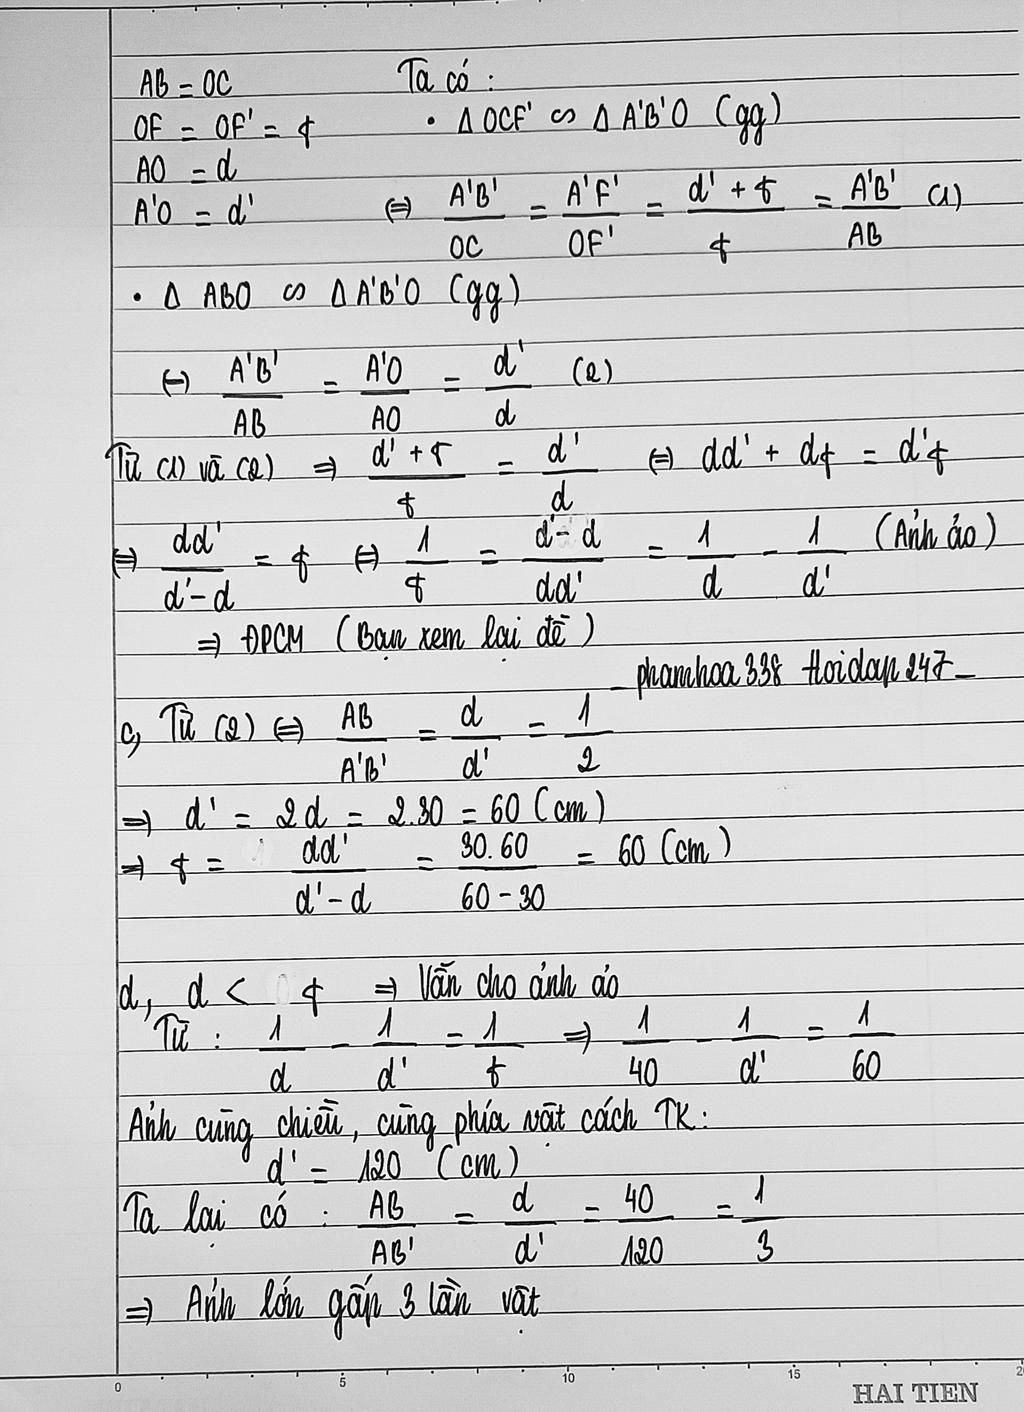 AB = OC Ta có :
OF = OF' = f • Δ OCF' ∽ Δ A'B'O (gg)
AO = d
A'O = d' ⇔ A'B'/OC = A'F'/OF' = (d' + f)/f = A'B'/AB (1)
• Δ ABO ∽ Δ A'B'O (gg)
⇔ A'B'/AB = A'O/AO = d'/d (2)
Từ (1) và (2) ⇒ (d' + f)/f = d'/d ⇔ dd' + df = d'f
⇔ dd'/(d'-d) = f ⇔ 1/f = (d'-d)/dd' = 1/d - 1/d' (Ảnh ảo)
⇒ ĐPCM (Bạn xem lại đề)
_phamhoa338 Hoidap247_
c, Từ (2) ⇔ AB/A'B' = d/d' = 1/2
⇒ d' = 2d = 2.30 = 60 (cm)
⇒ f = dd'/(d'-d) = 30.60/(60-30) = 60 (cm)
d, d < f ⇒ Vẫn cho ảnh ảo
Từ : 1/d - 1/d' = 1/f ⇒ 1/40 - 1/d' = 1/60
Ảnh cùng chiều, cùng phía vật cách TK:
d' = 120 (cm)
Ta lại có : AB/AB' = d/d' = 40/120 = 1/3
⇒ Ảnh lớn gấp 3 lần vật
0 5 10 15 20
HAI TIEN